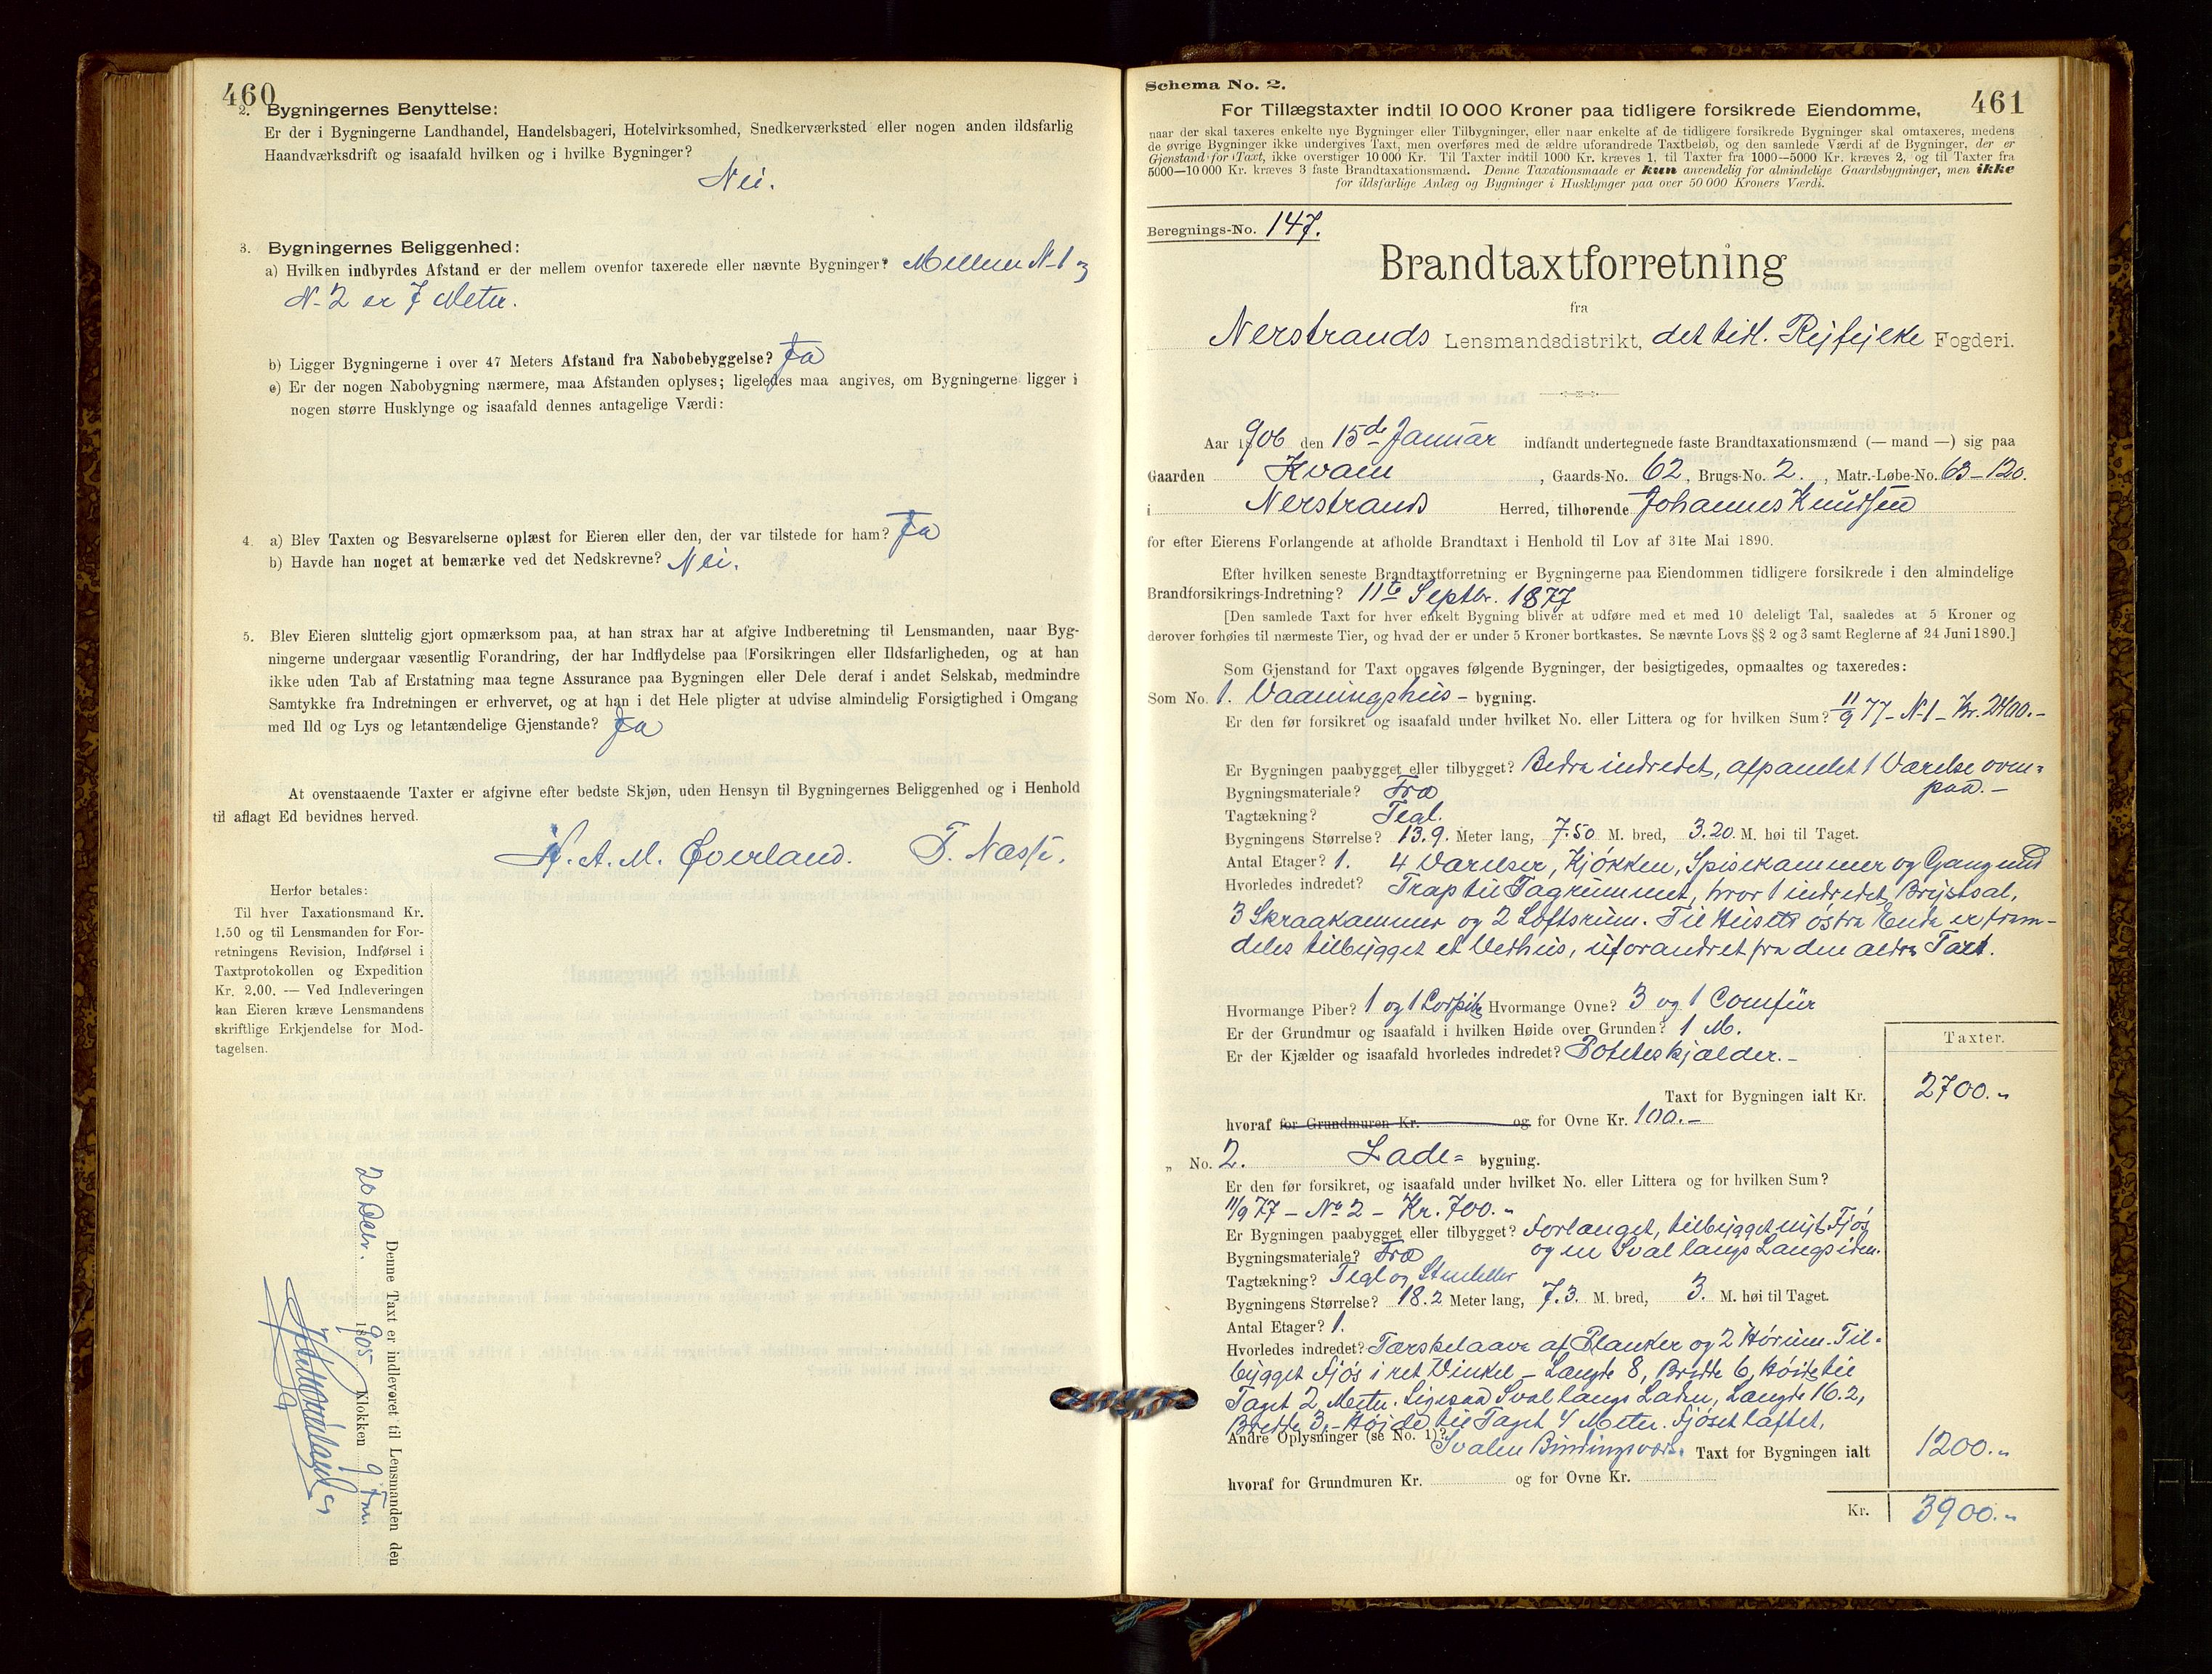 460
2. Bygningernes Benyttelse:
Er der i Bygningerne Landhandel, Handelsbageri, Hotelvirksomhed, Snedkerværksted eller nogen anden ildsfarlig
Haandværksdrift og isaafald hvilken og i hvilke Bygninger?
Nei.
3. Bygningernes Beliggenhed:
a) Hvilken indbyrdes Afstand er der mellem ovenfor taxerede eller nævnte Bygninger? Mellem N-1 og
N-2 er 7 Meter.
b) Ligger Bygningerne i over 47 Meters Afstand fra Nabobebyggelse? Ja
c) Er der nogen Nabobygning nærmere, maa Afstanden oplyses; ligeledes maa angives, om Bygningerne ligger i
nogen større Husklynge og isaafald dennes antagelige Værdi:
4. a) Blev Taxten og Besvarelserne oplæst for Eieren eller den, der var tilstede for ham? Ja
b) Havde han noget at bemærke ved det Nedskrevne? Nei.
5. Blev Eieren sluttelig gjort opmærksom paa, at han strax har at afgive Indberetning til Lensmanden, naar Byg-
ningerne undergaar væsentlig Forandring, der har Indflydelse paa Forsikringen eller Ildsfarligheden, og at han
ikke uden Tab af Erstatning maa tegne Assurance paa Bygningen eller Dele deraf i andet Selskab, medmindre
Samtykke fra Indretningen er erhvervet, og at han i det Hele pligter at udvise almindelig Forsigtighed i Omgang
med Ild og Lys og letantændelige Gjenstande? Ja
At ovenstaaende Taxter er afgivne efter bedste Skjøn, uden Hensyn til Bygningernes Beliggenhed og i Henhold
til aflagt Ed bevidnes herved.
N. A. M. Øverland. T. Næsse.
Herfor betales:
Til hver Taxationsmand Kr.
1.50 og til Lensmanden for For-
retningens Revision, Indførsel i
Taxtprotokollen og Expedition
Kr. 2,00. — Ved Indleveringen
kan Eieren kræve Lensmandens
skriftlige Erkjendelse for Mod-
tagelsen.
Denne Taxt er indleveret til Lensmanden den
20 Decbr. 1905 Klokken 9 Fm.
Schema No. 2.
461
For Tillægstaxter indtil 10 000 Kroner paa tidligere forsikrede Eiendomme,
naar der skal taxeres enkelte nye Bygninger eller Tilbygninger, eller naar enkelte af de tidligere forsikrede Bygninger skal omtaxeres, medens
de øvrige Bygninger ikke undergives Taxt, men overføres med de ældre uforandrede Taxtbeløb, og den samlede Værdi af de Bygninger, der er
Gjenstand for Taxt, ikke overstiger 10 000 Kr. Til Taxter indtil 1000 Kr. kræves 1, til Taxter fra 1000—5000 Kr. kræves 2, og til Taxter fra
5000—10 000 Kr. kræves 3 faste Brandtaxationsmænd. Denne Taxationsmaade er kun anvendelig for almindelige Gaardsbygninger, men ikke
for ildsfarlige Anlæg og Bygninger i Husklynger paa over 50 000 Kroners Værdi.
Beregnings-No. 147.
Brandtaxtforretning
fra
Nerstrands Lensmandsdistrikt, det tidl. Ryfylke Fogderi.
Aar 1906 den 15de Januar indfandt undertegnede faste Brandtaxationsmænd (— mand —) sig paa
Gaarden Kvam, Gaards-No. 62, Brugs-No. 2., Matr.-Løbe-No. 63-120.
i Nerstrands Herred, tilhørende Johannes Knudsen
for efter Eierens Forlangende at afholde Brandtaxt i Henhold til Lov af 31te Mai 1890.
Efter hvilken seneste Brandtaxtforretning er Bygningerne paa Eiendommen tidligere forsikrede i den almindelige
Brandforsikrings-Indretning? 11te Septbr. 1877
[Den samlede Taxt for hver enkelt Bygning bliver at udføre med et med 10 deleligt Tal, saaledes at 5 Kroner og
derover forhøies til nærmeste Tier, og hvad der er under 5 Kroner bortkastes. Se nævnte Lovs §§ 2 og 3 samt Reglerne af 24 Juni 1890.]
Som Gjenstand for Taxt opgaves følgende Bygninger, der besigtigedes, opmaaltes og taxeredes:
Som No. 1. Vaaningshus- bygning.
Er den før forsikret og isaafald under hvilket No. eller Littera og for hvilken Sum? 11/9 77 - N-1 - Kr. 2400.-
Er Bygningen paabygget eller tilbygget? Bedre indredet, afpanelet 1 Værelse oven-
paa.-
Bygningsmateriale? Træ
Tagtækning? Tegl.
Bygningens Størrelse? 13.9. Meter lang, 7.50 M. bred, 3.20. M. høi til Taget.
Antal Etager? 1. 4 Værelser, Kjøkken, Spisekammer og Gang med
Hvorledes indredet? Trap til Tagrummet, hvor 1 indredet Brystsal,
3 Skraakammer og 2 Loftsrum. Til Husets østre Ende er frem-
deles tilbygget et Vedhus, uforandret fra den ældre Taxt.
Hvormange Piber? 1 og 1 Hvormange Ovne? 3 og 1 Comfur
Er der Grundmur og isaafald i hvilken Høide over Grunden? 1 M.
Er der Kjælder og isaafald hvorledes indredet? Poteteskjælder.-
Taxter.
Taxt for Bygningen ialt Kr. 2700.-
hvoraf for Grundmuren Kr. og for Ovne Kr. 100.-
„ No. 2. Lade- bygning.
Er den før forsikret, og isaafald under hvilket No. eller Littera og for hvilken Sum?
11/9 77 - No 2 - Kr. 700.-
Er Bygningen paabygget eller tilbygget? Forlænget, tilbygget nyt Fjøs
og en Sval langs Langsiden.
Bygningsmateriale? Træ
Tagtækning? Tegl og Stenheller
Bygningens Størrelse? 18.2 Meter lang, 7.3. M. bred, 3. M. høi til Taget.
Antal Etager? 1.
Hvorledes indredet? Tærskelaave af Planker og 2 Hørum. Til-
bygget Fjøs i ret Vinkel - Længde 8, Bredde 6, Høide til
Taget 2, Meter. Ligesaa Sval langs Laden, Længde 16.2,
Bredde 3,- Høide til Taget Meter. Fjøset laftet,
Andre Oplysninger (se No. 1)? Svalen Bindingsværk. Taxt for Bygningen ialt 1200.-
hvoraf for Grundmuren Kr. og for Ovne Kr.
Kr. 3900.-